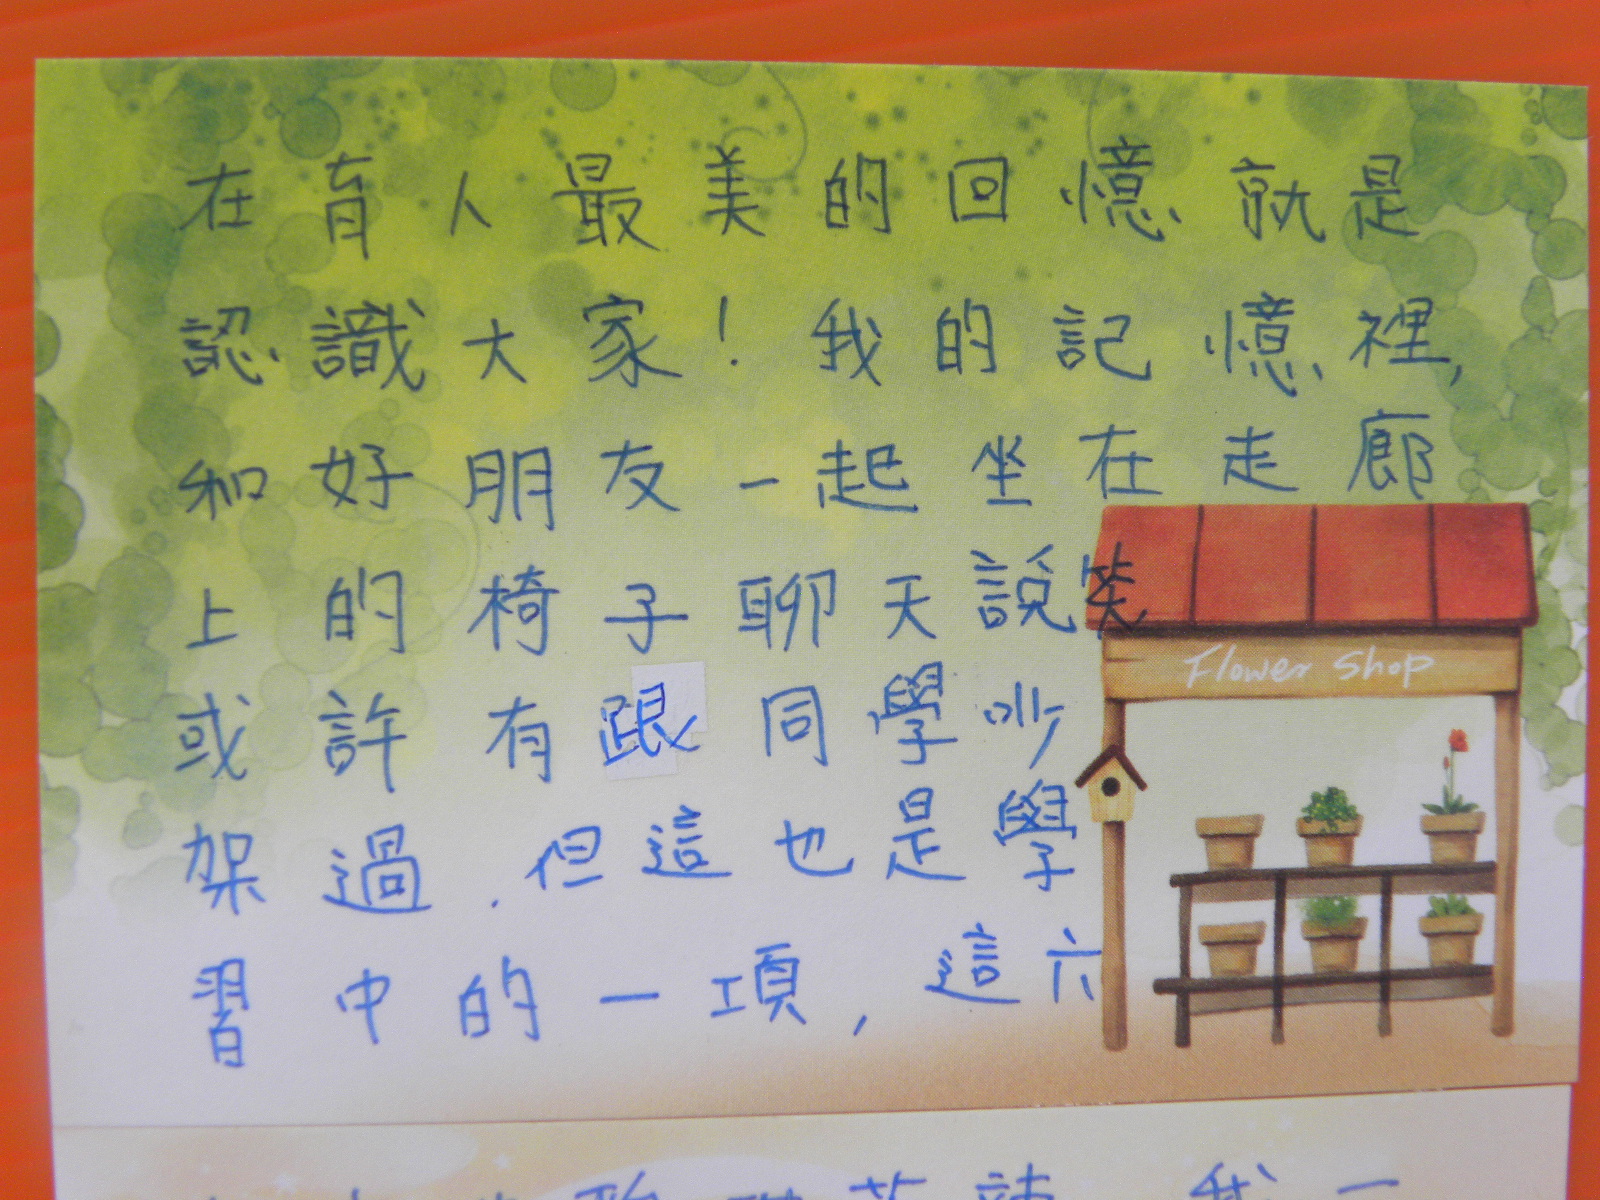 在育人最美的回憶就是
認識大家!我的記憶裡,
和好朋友一起坐在走廊
上的椅子聊天說笑
Flower Shop
或許有跟同學吵
架過.但這也是學
習中的一項,這六
我一